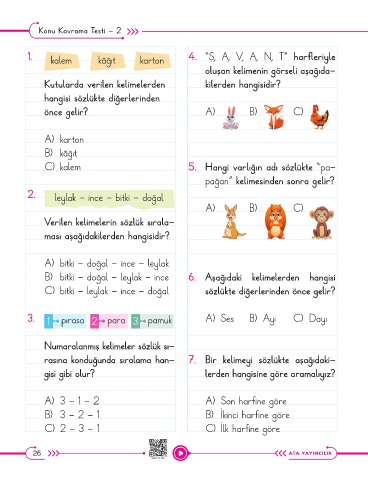 Konu Kavrama Testi - 2
1.
kalem kâğıt karton
Kutularda verilen kelimelerden
hangisi sözlükte diğerlerinden
önce gelir?
A) karton
B) kâğıt
C) kalem
2.
leylak - ince - bitki - doğal
Verilen kelimelerin sözlük sırala-
ması aşağıdakilerden hangisidir?
A) bitki - doğal - ince - leylak
B) bitki - doğal - leylak - ince
C) bitki - leylak - ince - doğal
3. 1 pırasa 2 para 3 pamuk
Numaralanmış kelimeler sözlük sı-
rasına konduğunda sıralama han-
gisi gibi olur?
A) 3 - 1 - 2
B) 3 - 2 - 1
C) 2 - 3 - 1
4. "Ş, A, V, A, N, T" harfleriyle
oluşan kelimenin görseli aşağıda-
kilerden hangisidir?
A) B) C)
5. Hangi varlığın adı sözlükte "pa-
pağan" kelimesinden sonra gelir?
A) B) C)
6. Aşağıdaki kelimelerden hangisi
sözlükte diğerlerinden önce gelir?
A) Ses B) Ayı C) Dayı
7. Bir kelimeyi sözlükte aşağıdaki-
lerden hangisine göre aramalıyız?
A) Son harfine göre
B) İkinci harfine göre
C) İlk harfine göre
26
ATA YAYINCILIK